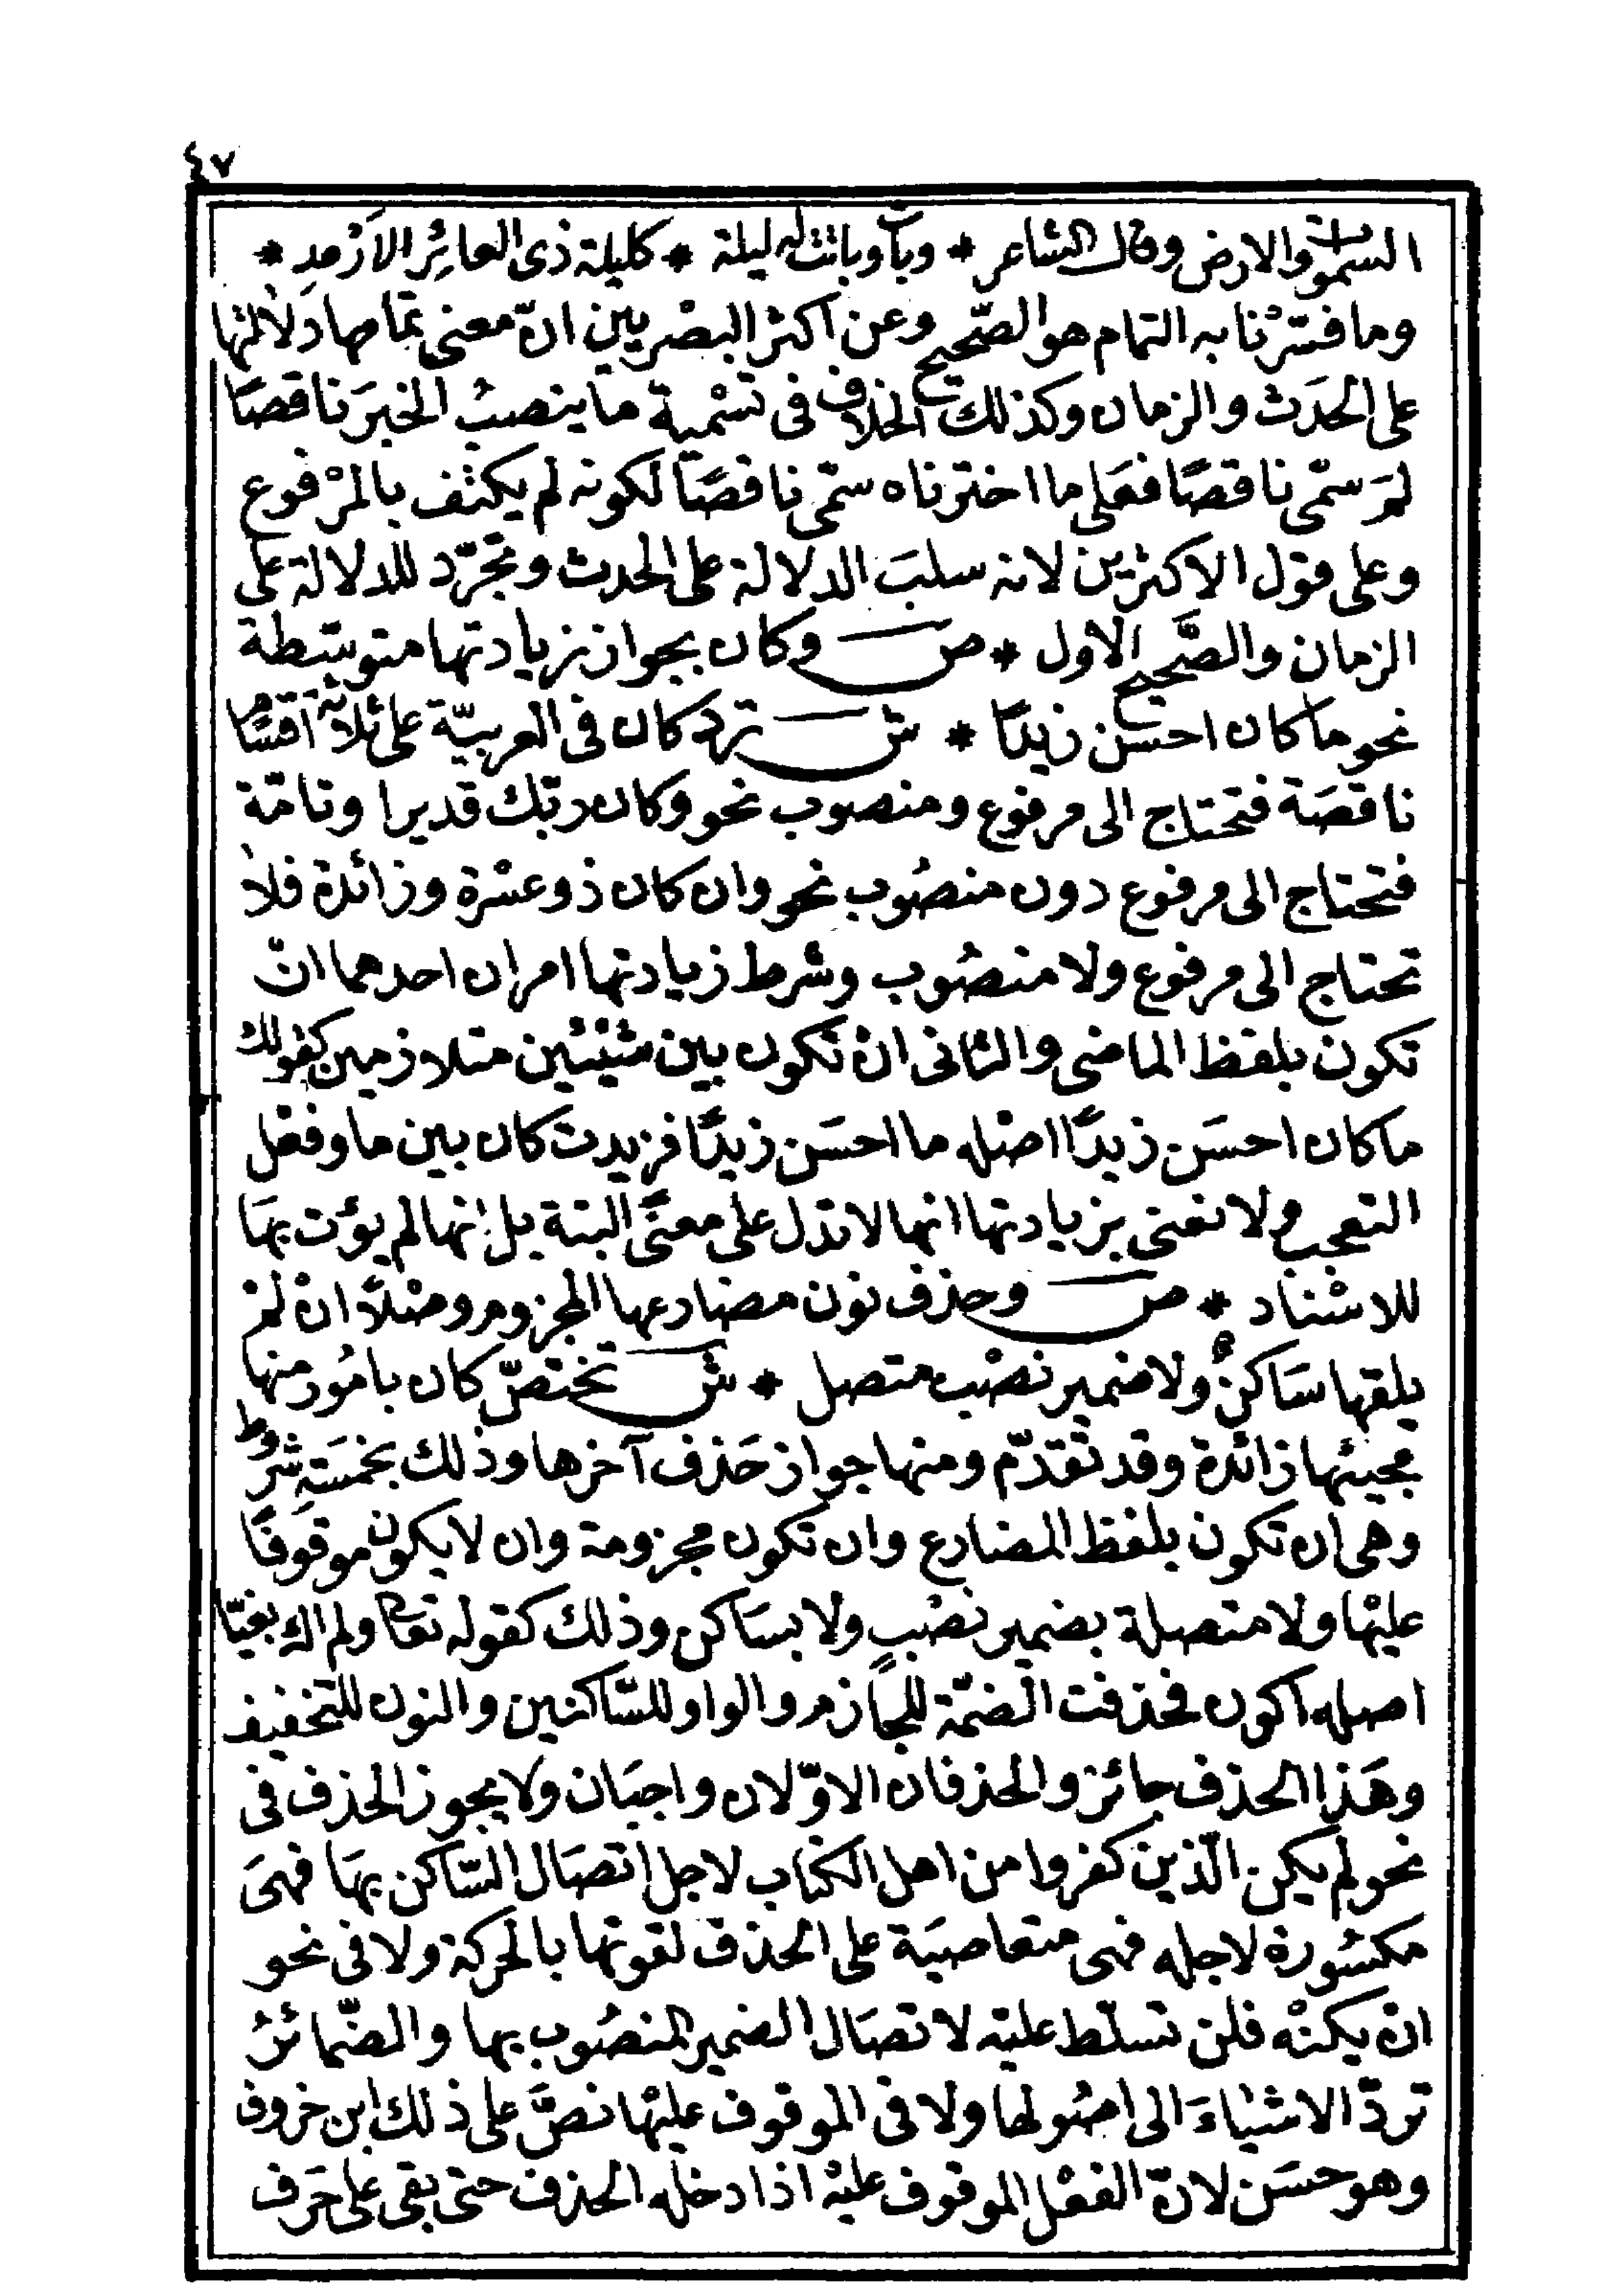 ٤٧
السموات والارض وقال الشاعر * وبات وباتت له ليلة * كليلة ذى العائِر الاَرْمدِ *
وما فسّرْنا به التمام هو الصّحيح وعن اكثر البصْريين انّ معنى تمامها دَلالتها
على الحَدَث والزمان وكذلك الخلاف فى تسْمية ما ينصبُ الخبرَ ناقصًا
لمَ سمّى ناقصًا فعَلى ما اخترناه سمّى ناقصًا لكونه لم يكتف بالمرْفوع
وعلى قول الاكثرين لانه سلبَ الدلالة على الحدث وتجرّد للدلالة على
الزمان والصَّحيح الاول * ص وكان بجواز زيادتها متوسّطة
نحو ما كان احسَن زيدًا * ش ترد كان فى العربيّة على ثلاثة اقسام
ناقصَة فتحتاج الى مرفوع ومنصوب نحو وكان ربّك قديرا وتامّة
فتحتاج الى مرفوع دون منصُوب نحو وان كان ذو عسْرة وزائدة فلا
تحتاج الى مرفوع ولا منصُوب وشرط زيادتها امران احدهما انْ
تكون بلفظ الماضى والثانى انْ تكون بين شيْئين متلازمين كقولك
ما كان احسَن زيدًا اصْله ما احسَن زيدًا فزيدت كان بين ما وفعْل
التعجب ولا نعنى بزيادتها انها لا تدل على معنًى البتة بل انها لم يؤت بهَا
للاسْناد * ص وحذف نون مضارعها المجزوم وصْلاً انْ لمْ
يلقها سَاكنٌ ولا ضمير نصْب متصل * ش تختصّ كان بامُور منها
مجيئها زائدة وقد تقدّم ومنها جواز حَذف آخرها وذلك بخمسَة شروط
وهى ان تكون بلفظ المضارع وان تكون مجزومة وان لا يكون موقوفًا
عليْها ولا متصلة بضمير نصْبٍ ولا بسَاكن وذلك كقوله تعا ولم اك بغيّا
اصله اكون فحذفت الضمّة للجازم والواو للسّاكنين والنون للتخفيف
وهَذا الحذف جائز والحذفان الاوّلان واجبَان ولا يجوز الحذف فى
نحو لم يكن الّذين كفروا من اهل الكتاب لاجل اتصَال السّاكن بهَا فهىَ
مكسُورة لاجله فهى متعاصيَة على الحذف لقوتها بالحركة ولا فى نحو
انْ يكنْه فلن تسلّط عليْه لاتصَال الضمير المنصُوب بها والضّمائرُ
تردّ الاشيَاءَ الى اصُولها ولا فى الموقوف عليْها نصَّ على ذلك ابن خروف
وهو حسَن لانّ الفعْل الموقوف عليْه اذا دخله الحذف حتى بقى على حَرف